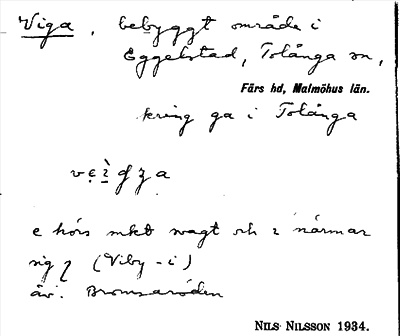 Viga, bebyggt område i
Eggelstad, Tolånga sn,
Färs hd, Malmöhus län.
kring ga i Tolånga
e hörs mkt svagt och ɩ närmar
sig ʅ (Viby-i)
äv. Bromsaröden
NILS NILSSON 1934.